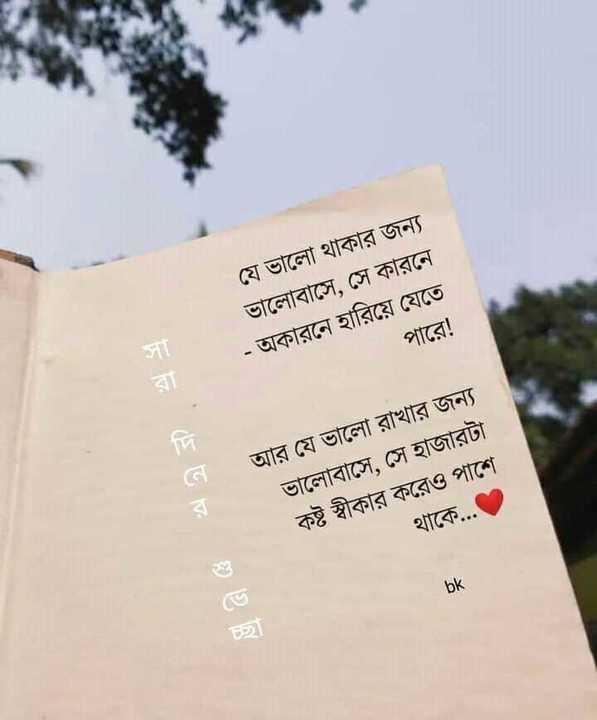 যে ভালো থাকার জন্য
ভালোবাসে, সে কারনে
- অকারনে হারিয়ে যেতে
পারে!
আর যে ভালো রাখার জন্য
ভালোবাসে, সে হাজারটা
কষ্ট স্বীকার করেও পাশে
থাকে...❤️
bk
সা
রা
দি
নে
র
শু
ভে
চ্ছা